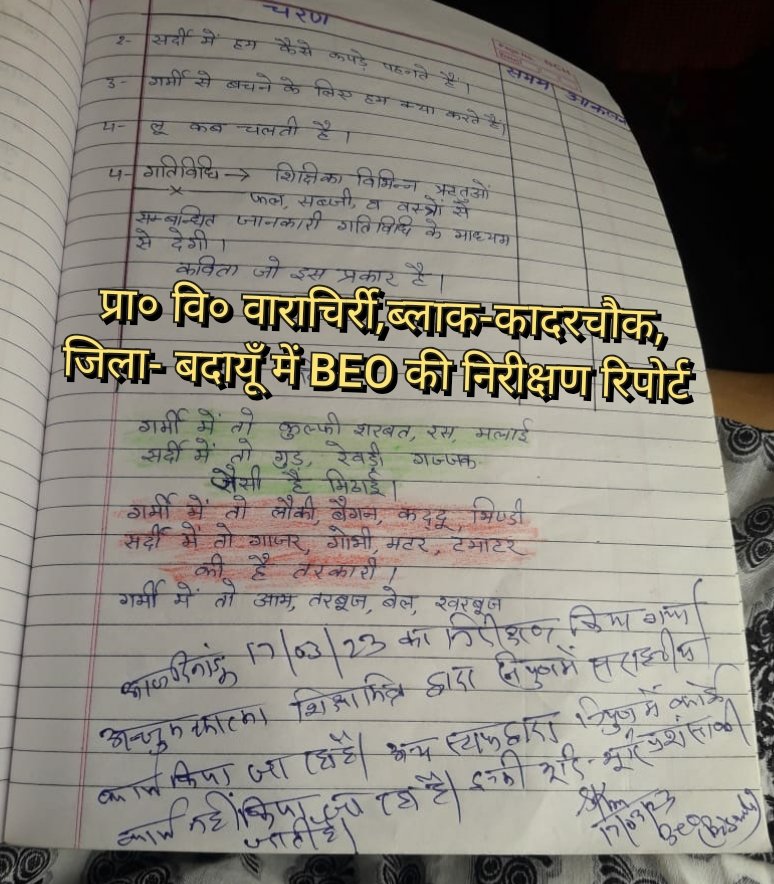 चरण
समय आकलन
2- सर्दी में हम कैसे कपड़े पहनते हैं।
3- गर्मी से बचने के लिए हम क्या करते हैं।
4- लू कब चलती है।
4- गतिविधि → शिक्षिका विभिन्न ऋतुओं
फल, सब्जी, व वस्त्रों से
सम्बन्धित जानकारी गतिविधि के माध्यम
से देगी।
कविता जो इस प्रकार है।
प्रा० वि० वाराचिर्री,ब्लाक-कादरचौक,
जिला- बदायूँ में BEO की निरीक्षण रिपोर्ट
गर्मी में तो कुल्फी शरबत, रस, मलाई
सर्दी में तो गुड़, रेवड़ी गज्जक
जैसी है मिठाई।
गर्मी में तो लौकी, बैगन, कद्दू, भिण्डी
सर्दी में तो गाजर, गोभी, मटर, टमाटर
की है तरकारी।
गर्मी में तो आम, तरबूज, बेल, खरबूज
आज दिनांक 17/03/23 का निरीक्षण किया गया
शिक्षामित्र द्वारा निपुण में सराहनीय
कार्य किया जा रहा है। अन्य स्टाफ द्वारा निपुण में कोई
कार्य नहीं किया जा रहा है। इनकी भूरि-भूरि प्रशंसा की
जाती है।
17/03/23